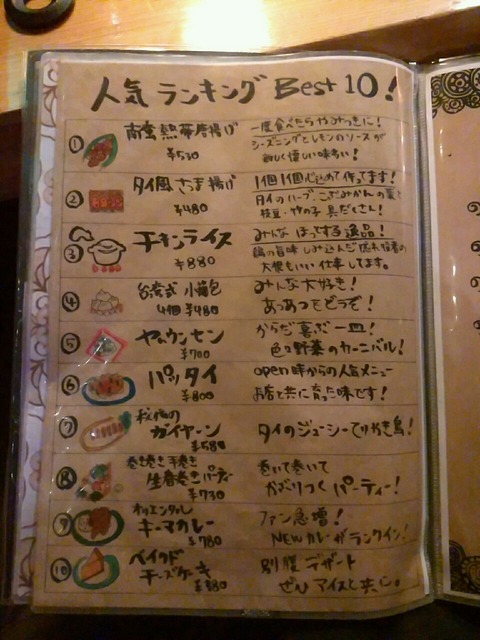 人気ランキング Best 10!
① 南蛮熱帯唐揚げ
¥530
一度食べたらやみつきに!
シーズニングとレモンのソースが
② タイ風さつま揚げ
¥480
1個1個心込めて作ってます!
タイのハーブ、こぶみかんの葉と
枝豆・竹の子 具だくさん!
③ チキンライス
¥880
みんな ほっとする逸品!
鶏の旨味 しみ込んだ隠れ役者の
大根もいい仕事してます。
④ 台湾式 小籠包
4個 ¥480
みんな大好き!
あつあつをどうぞ!
⑤ ヤムウンセン
¥700
からだ喜ぶ一皿!
色々野菜のカーニバル!
⑥ パッタイ
¥800
open時からの人気メニュー
お店と共に育った味です!
⑦ 秘伝の
ガイヤーン
¥580
タイのジューシーてりやき鳥!
⑧ 巻き巻き手巻き
生春巻きパーティー
¥730
巻いて巻いて
かぶりつく パーティー!
⑨ オリエンタル
キーマカレー
¥780
ファン急増!
NEWカレーがランクイン!
⑩ ベイクド
チーズケーキ
別腹デザート
ぜひ アイスと共に。